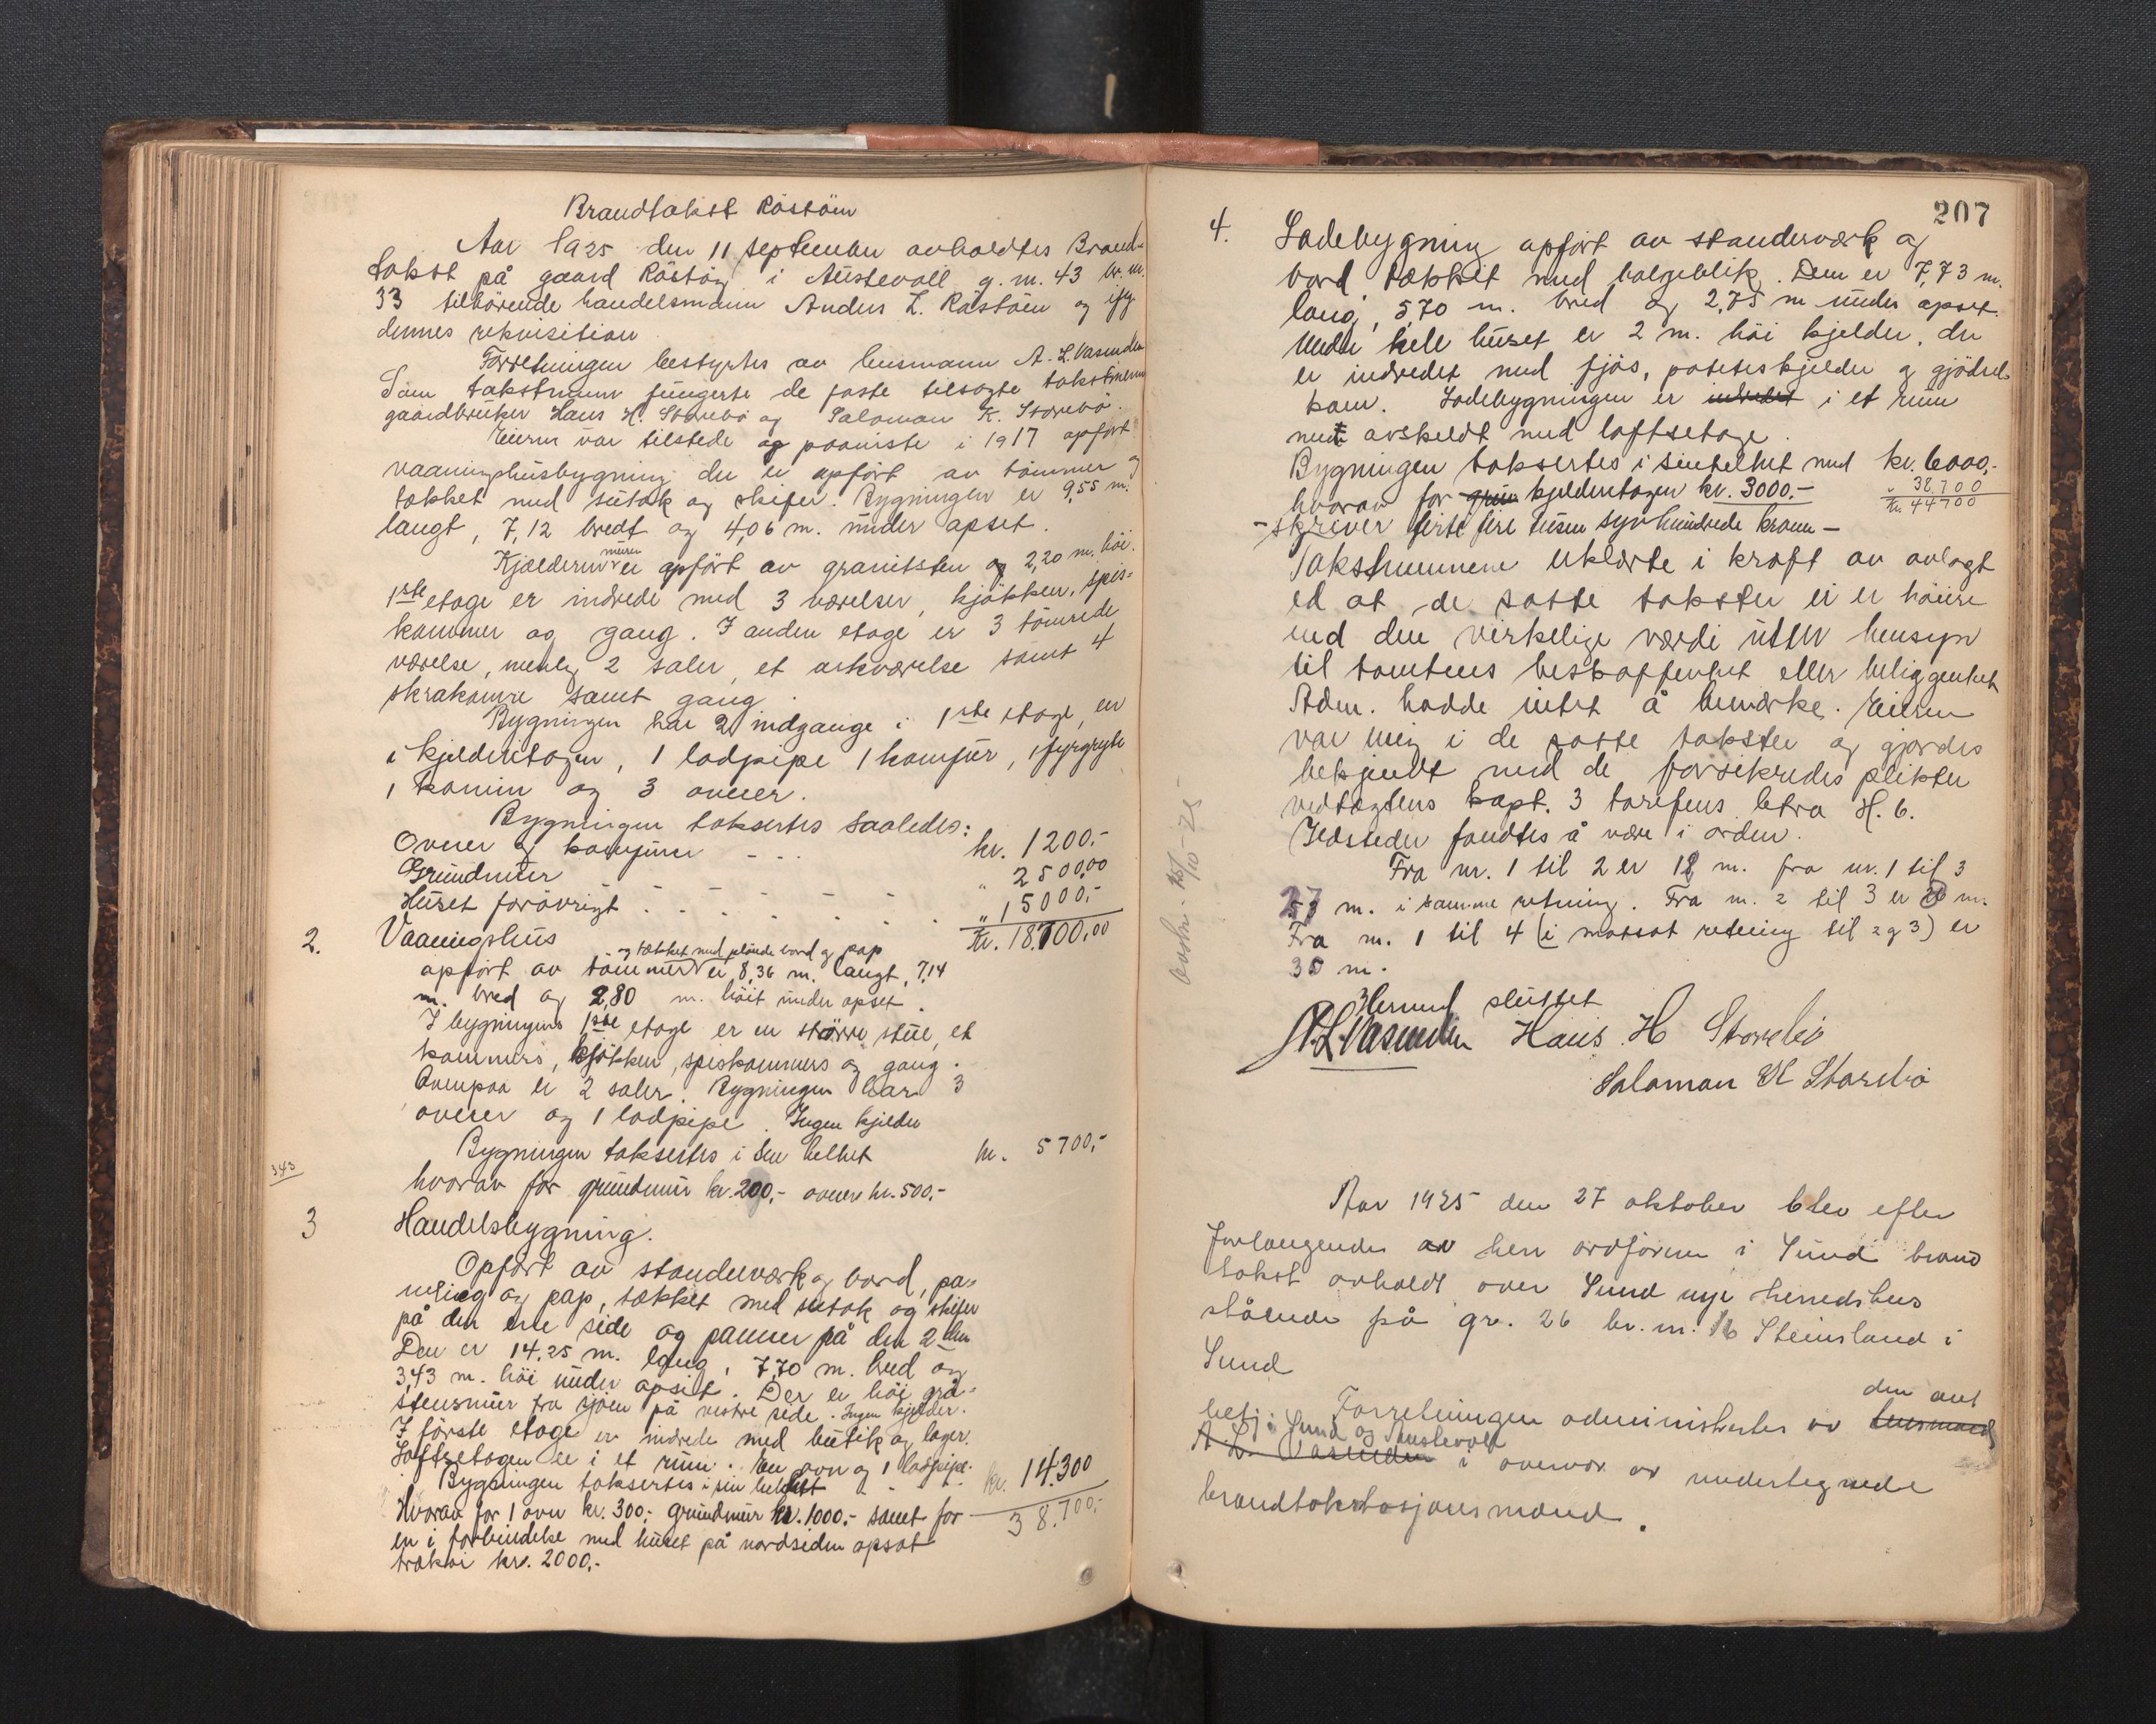 Brandtakst Röstöen
Aar 1925 den 11 september avholdtes Brand-
takst på gaard Röstöen i Austevoll g. nr. 43 br. nr.
33 tilhörende handelsmann Anders L. Röstöen og ifg.
dennes rekvisition
Forretningen bestyrtes av lensmann A. L. Vasenden
Som takstmenn fungerte de faste tilsagte takstmenn
gaardbruker Hans H. Storebö og Salomon K. Storebö.
Eieren var tilstede og paaviste i 1917 opfört
vaaningshusbygning der er opfört av tömmer og
tækket med sutak og skifer. Bygningen er 9,55 m.
langt, 7,12 bredt og 4,06 m. under opset.
Kjelderen muren er opfört av granitsten og 2,20 m. höi.
1ste etage er indrede med 3 værelser, kjökken, spis-
kammer og gang. I anden etage er 3 tömrede
værelse, nemlig 2 saler, et arkværelse samt 4
skrakamre samt gang.
Bygningen har 2 indgange i 1ste etage, en
i kjelderetagen, 1 lodpipe 1 komfur, 1 fyrgryte
1 kamin og 3 ovner.
Bygningen taksertes saaledes:
Ovner og komfurer - - - kr. 1200,-
Grundmur - - - - - " 2500,00
Huset forövrigt . . . . . . " 15000,-
Kr. 18.700,00
2. Vaaningshus
og tækket med plöiede bord og pap
opfört av tömmer er 8,36 m. langt, 7,14
m. bred og 2,80 m. höit under opset.
I bygningens 1ste etage er en större stue, et
kammers, kjökken, spiskammers og gang.
Ovenpaa er 2 saler. Bygningen har 3
ovner og 1 lodpipe. Ingen kjelder
Bygningen taksertes i sin helhet kr. 5700,-
343
hvorav for grundmur kr. 200,- ovner kr. 500,-
3 Handelsbygning.
Opfört av standerværk og bord, pa-
neling og pap, tækket med sutak og skifer
på den ene side og panner på den 2den
Den er 14,25 m. lang, 7,70 m. bred og
3,43 m. höi under opset. Der er höi grå-
stensmur fra sjöen på vestre side. Ingen kjelder.
I förste etage er indrede med butik og lager.
Loftsetagen er i et rum. En ovn og 1 lodpipe.
Bygningen taksertes i sin helhet - - kr. 14.300
Hvorav for 1 ovn kr. 300,- grundmur kr. 1000.- samt for
38.700,-
en i forbindelse med huset på nordsiden opsat
trækai kr. 2000,-
207
4. Ladebygning opfört av standerværk og
bord tækket med bølgeblik. Den er 7,73 m.
lang, 5,70 m. bred og 2,75 m under opset.
Under hele huset er 2 m. höi kjelder, der
er indredet med fjös, potetskjelder og gjödsel-
kom. Ladebygningen er indredet i et rum
avskeldt med loftsetage.
Bygningen taksertes i sin helhet med kr. 6000,-
" 38.700
hvorav for grun kjelderetagen kr. 3000.-
Kr. 44700
- skriver firti fire tusen syv hundrede kroner -
Takstmennene erklærte i kraft av avlagt
ed at de satte takster ei er höiere
end den virkelige værdi uten hensyn
til tomtens beskaffenhet eller beliggenhet
Adm. hadde intet å bemærke. Eieren
var enig i de satte takster og gjordes
bekjendt med de forsikredes plikter
vedtægtens kapt. 3 tarifens litra H. 6.
Ildsteder fandtes å være i orden.
Fra nr. 1 til 2 er 12 m. fra nr. 1 til 3
27 m. i samme retning. Fra nr. 2 til 3 er m.
Fra nr. 1 til 4 (i motsat retning til 2 og 3) er
30 m.
Hermed sluttet
A. L. Vasenden Hans H Storebö
Salomon K Storebö
Aar 1925 den 27 oktober blev efter
forlangende av herr ordförer i Sund brand
takst avholdt over Sund nye herredshus
stående på gr. 26 br. nr. 16 Steinsland i
Sund
Forretningen administrertes av lensmand den ant
betj. i Sund og Austevoll
A. L. Vasenden i overvær av undertegnede
brandtakstasjonsmænd.